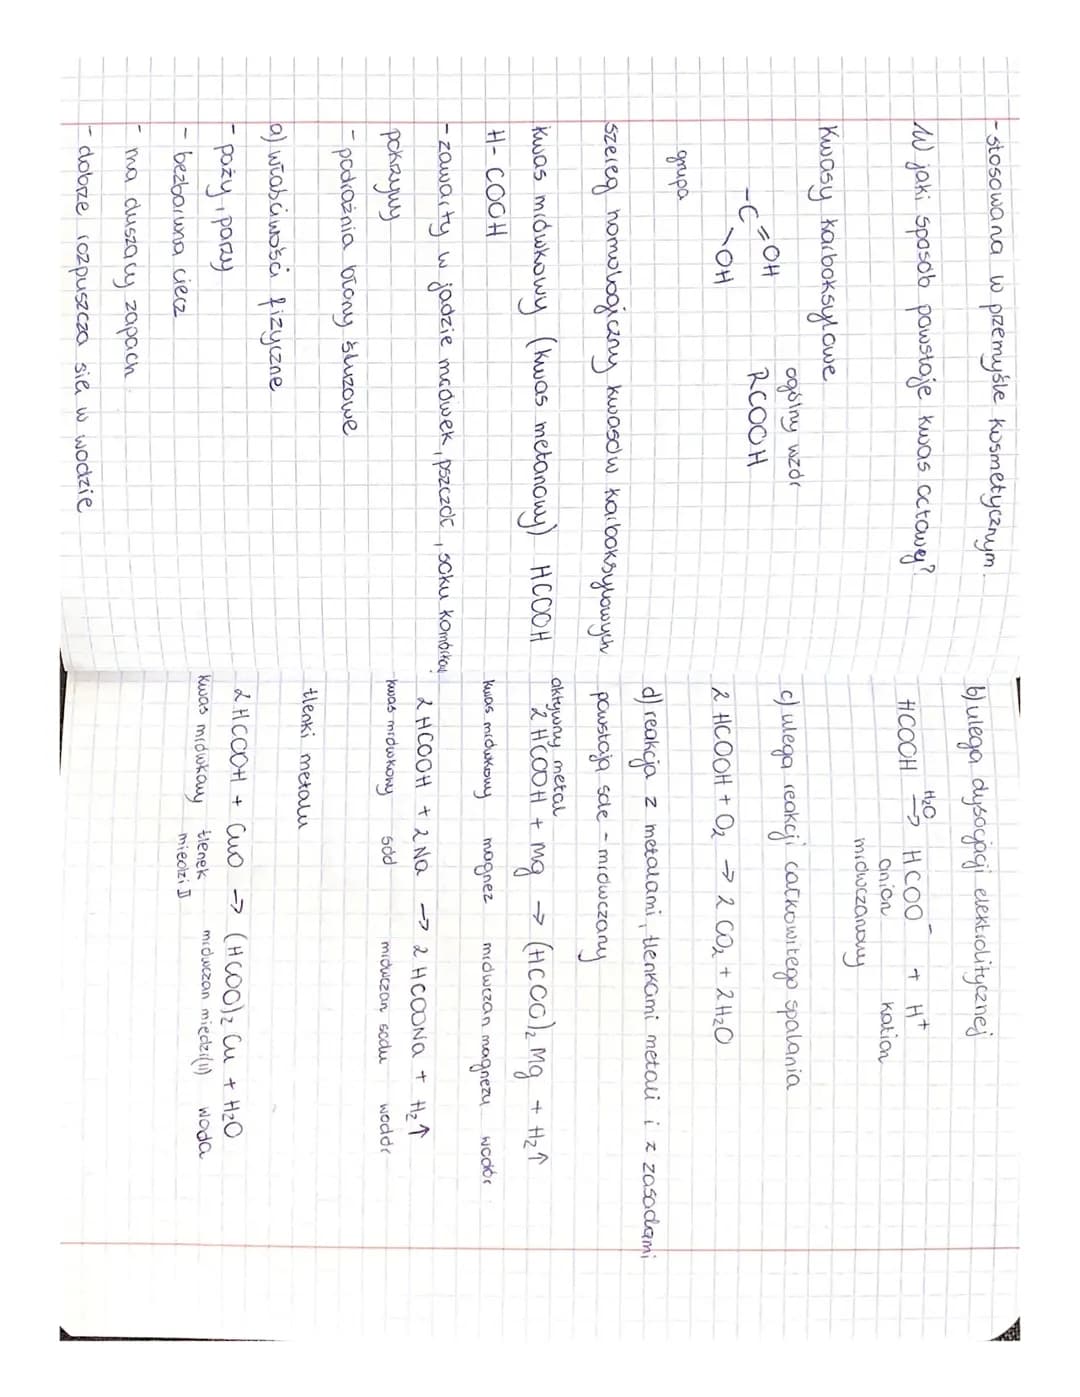 - stosowana w przemyśle kosmetycznym.
W jaki sposób powstaje kwas octowy?
Kwasy karboksylowe
ogólny wzór
-C=OH
\OH
RCOOH
grupa
szereg homologiczny kwasów karboksylowych
kwas mrówkowy (kwas metanowy) HCOOH
H-COOH
- zawarty w jadzie mrówek, pszczół, soku komórkowy
pokrzywy
- podrażnia błony śluzowe
a) właściwości fizyczne
- paży, parzy
- bezbarwna ciecz
- ma duszący zapach
- dobrze rozpuszcza się w wodzie
b) ulega dysocjacji elektrolitycznej
HCOOH H₂O→ HCOO⁻ + H⁺
anion kation
mrówczanowy
c) ulega reakcji całkowitego spalania
2 HCOOH + O₂ → 2 CO₂ + 2H₂O
d) reakcja z metalami, tlenkami metali i z zasadami
powstają sole - mrówczany
aktywny metal
2 HCOOH + Mg → (HCOO)₂ Mg + H₂↑
kwas mrówkowy magnez mrówczan magnezu wodór
2 HCOOH + 2 Na → 2 HCOONa + H₂↑
kwas mrówkowy sód mrówczan sodu wodór
tlenki metalu
2 HCOOH + CuO → (HCOO)₂ Cu + H₂O
kwas mrówkowy tlenek mrówczan miedzi(II) woda
miedzi II